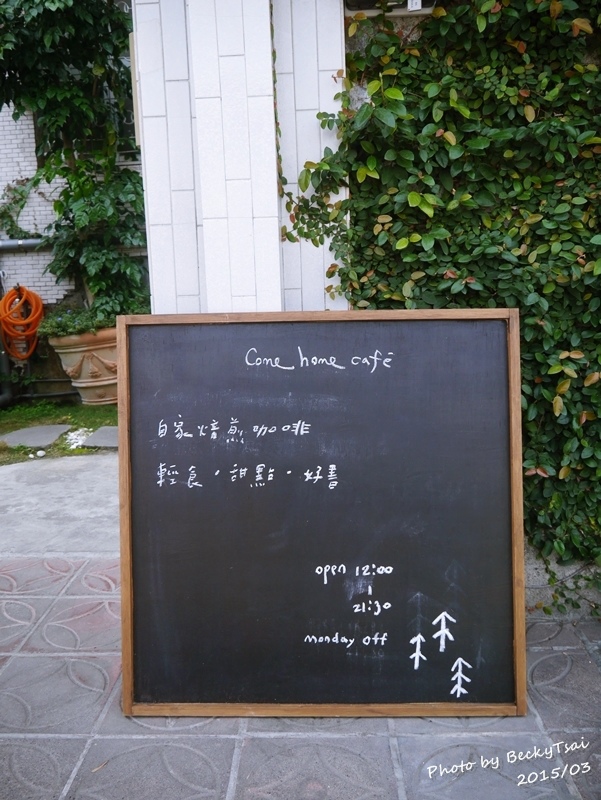 Come home café
自家焙煎咖啡
輕食・甜點・好書
open 12:00
|
21:30
monday off
Photo by BeckyTsai
2015/03